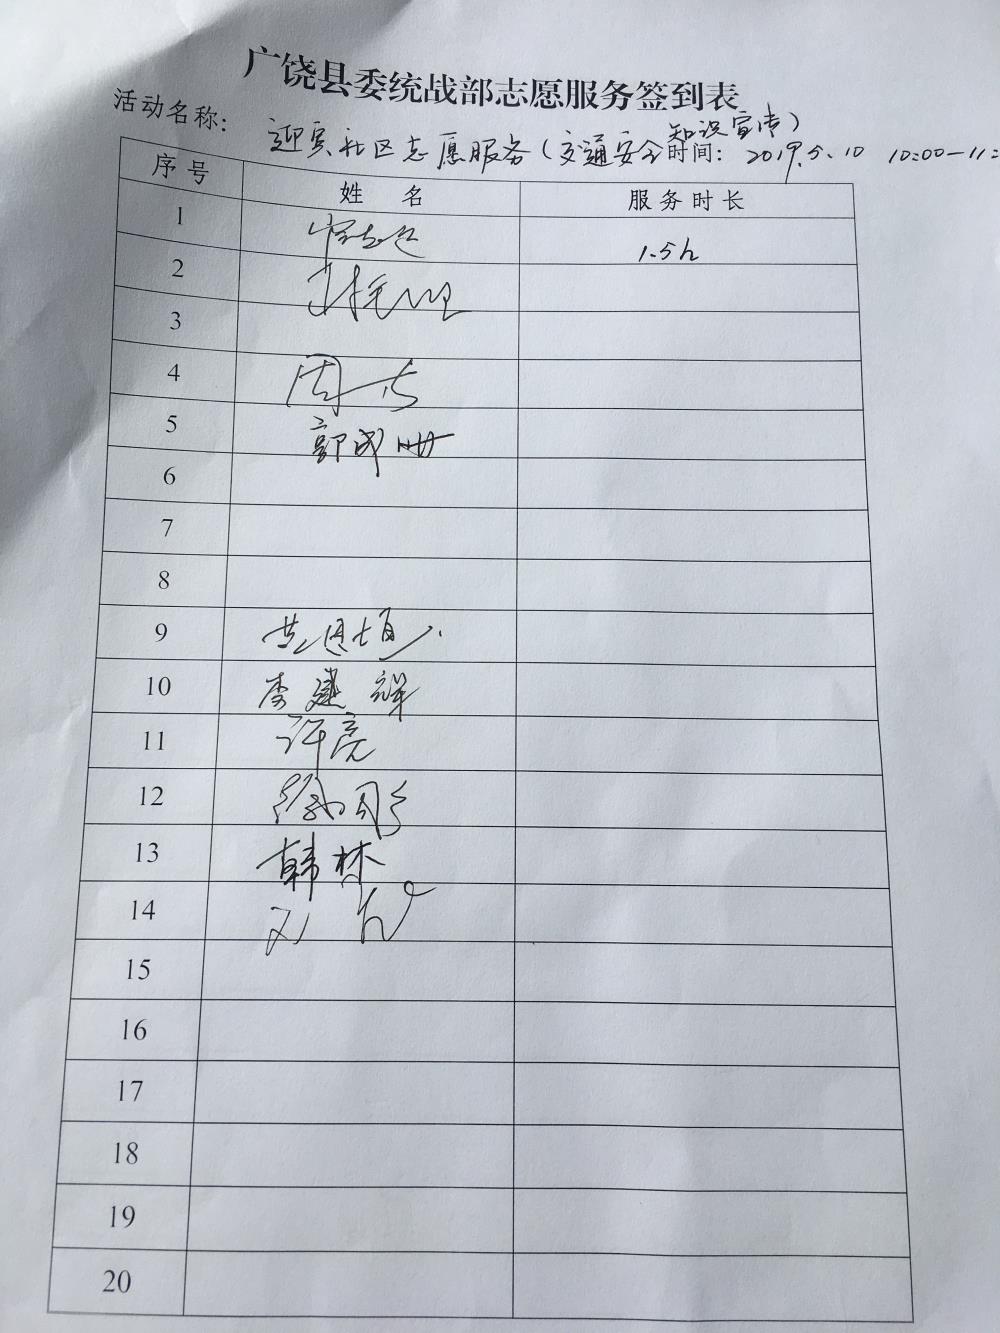 广饶县委统战部志愿服务签到表
活动名称： 迎宾社区志愿服务（交通安全知识宣传） 时间： 2019.5.10 10:00-11:
序号 姓 名 服务时长
1 1.5h
2
3
4
5 郭成
6
7
8
9
10 李建祥
11 许亮
12
13 韩林
14
15
16
17
18
19
20